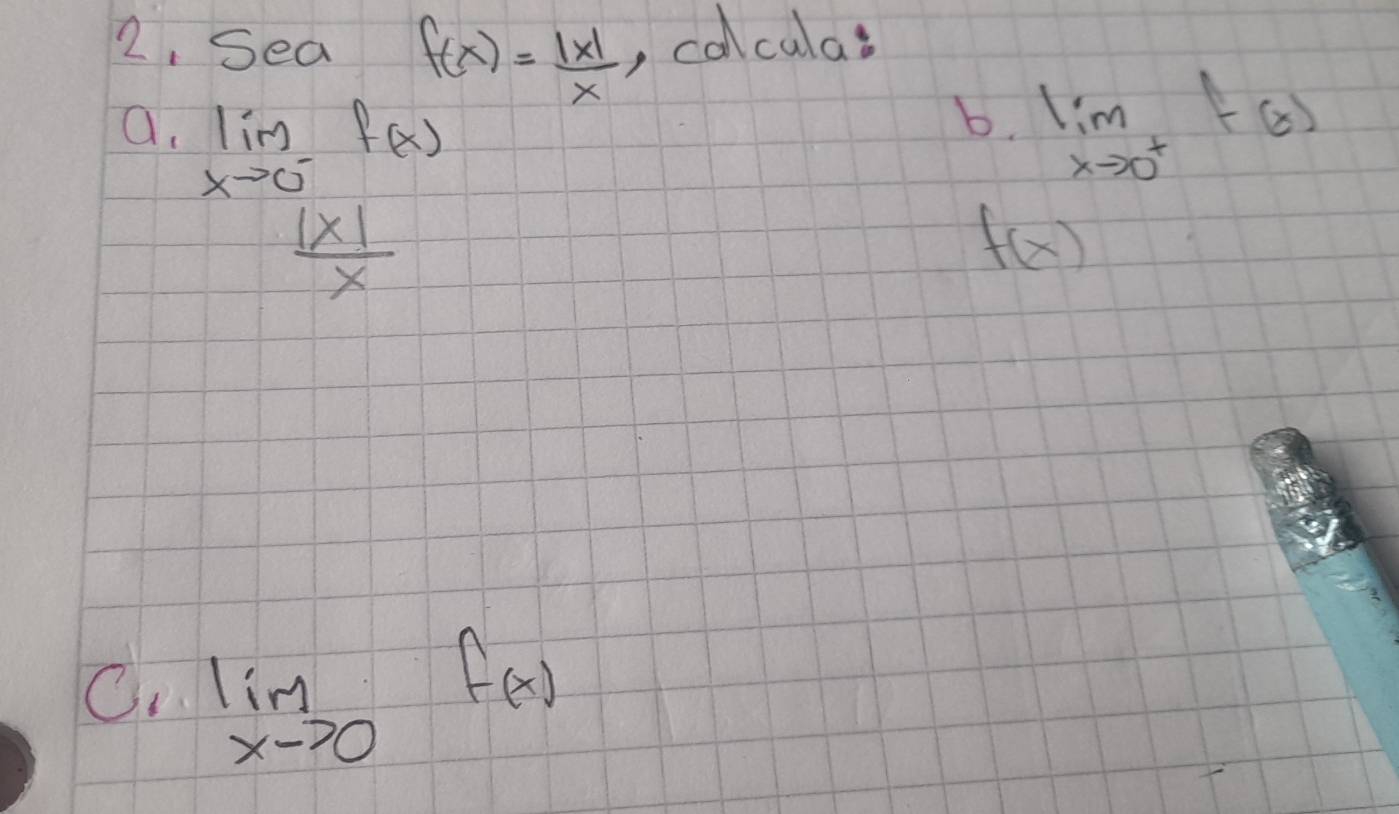 2. Sea f(x) = |x|/x, calcula:
a. lim x→0⁻ f(x)
b. lim x→0⁺ f(x)
|x|/x
f(x)
c. lim x→0 f(x)